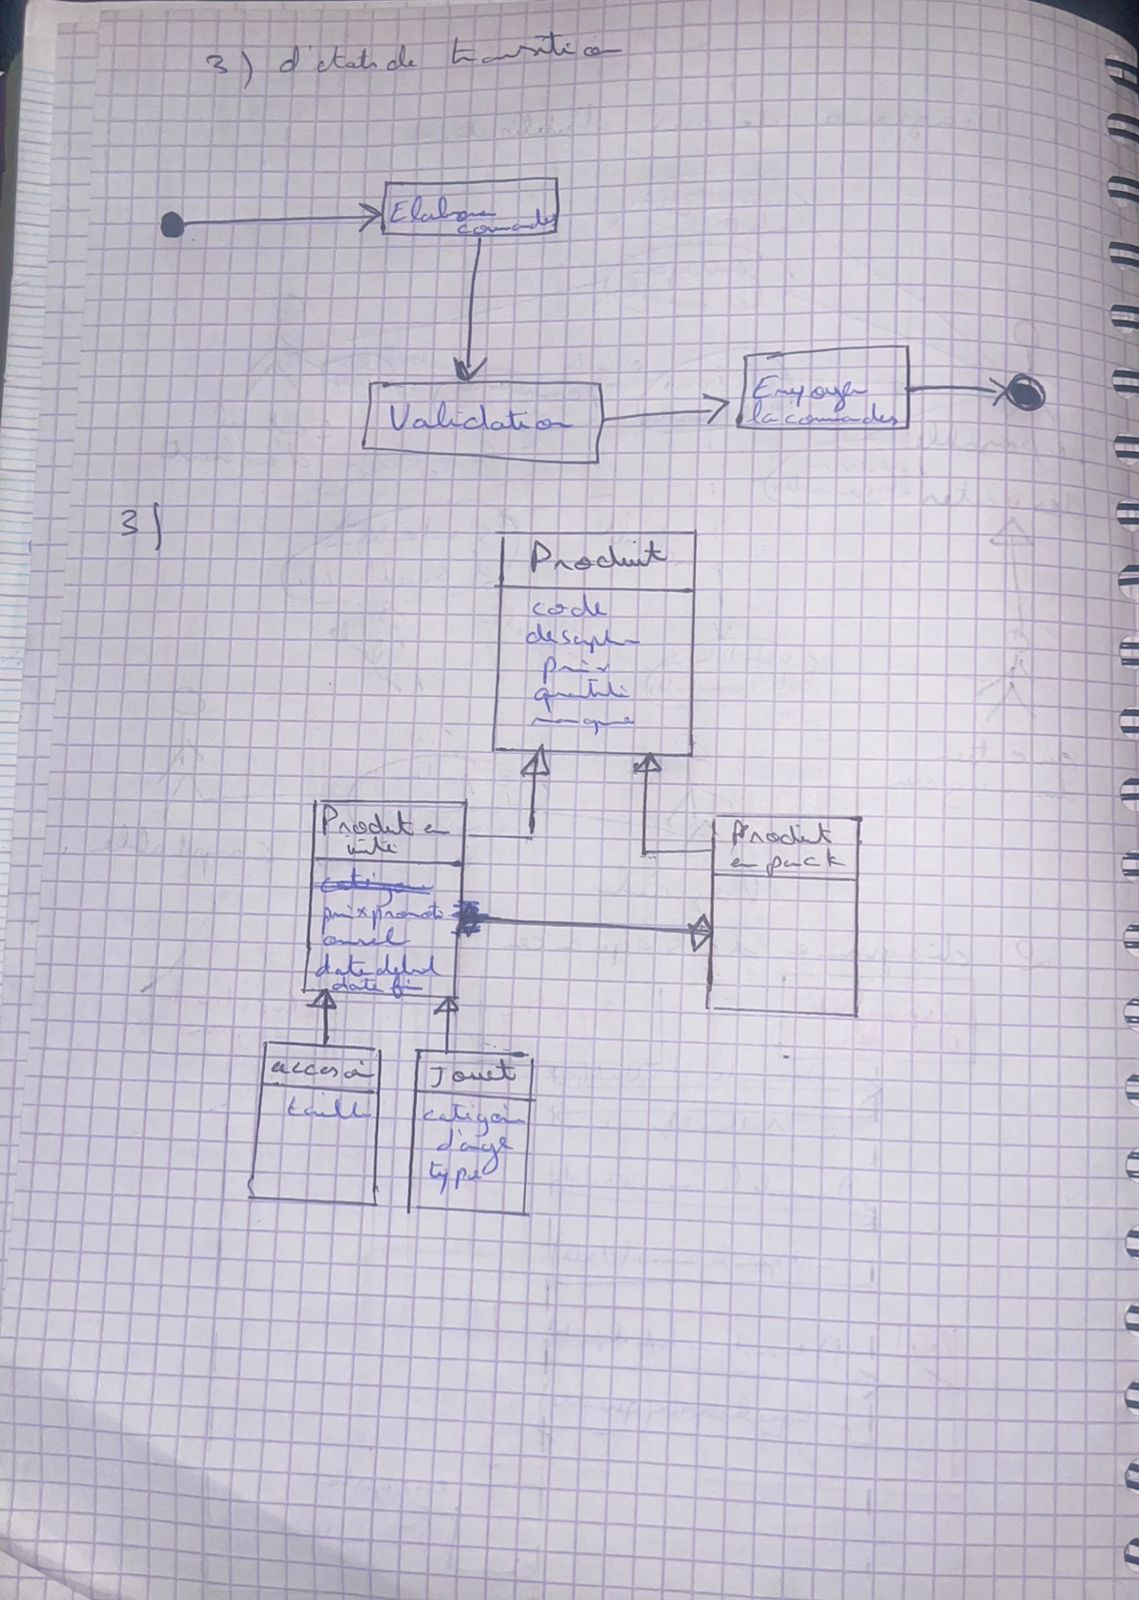 3) d'etats de transition
Elaborer
commandes
Validation
Envoyer
la commandes
3)
Produit
code
description
prix
quantité
marque
Produit en
unité
prix promoti
onnel
date debut
date fin
Produit
en pack
accesoi
taille
Jouet
catégori
d'age
type